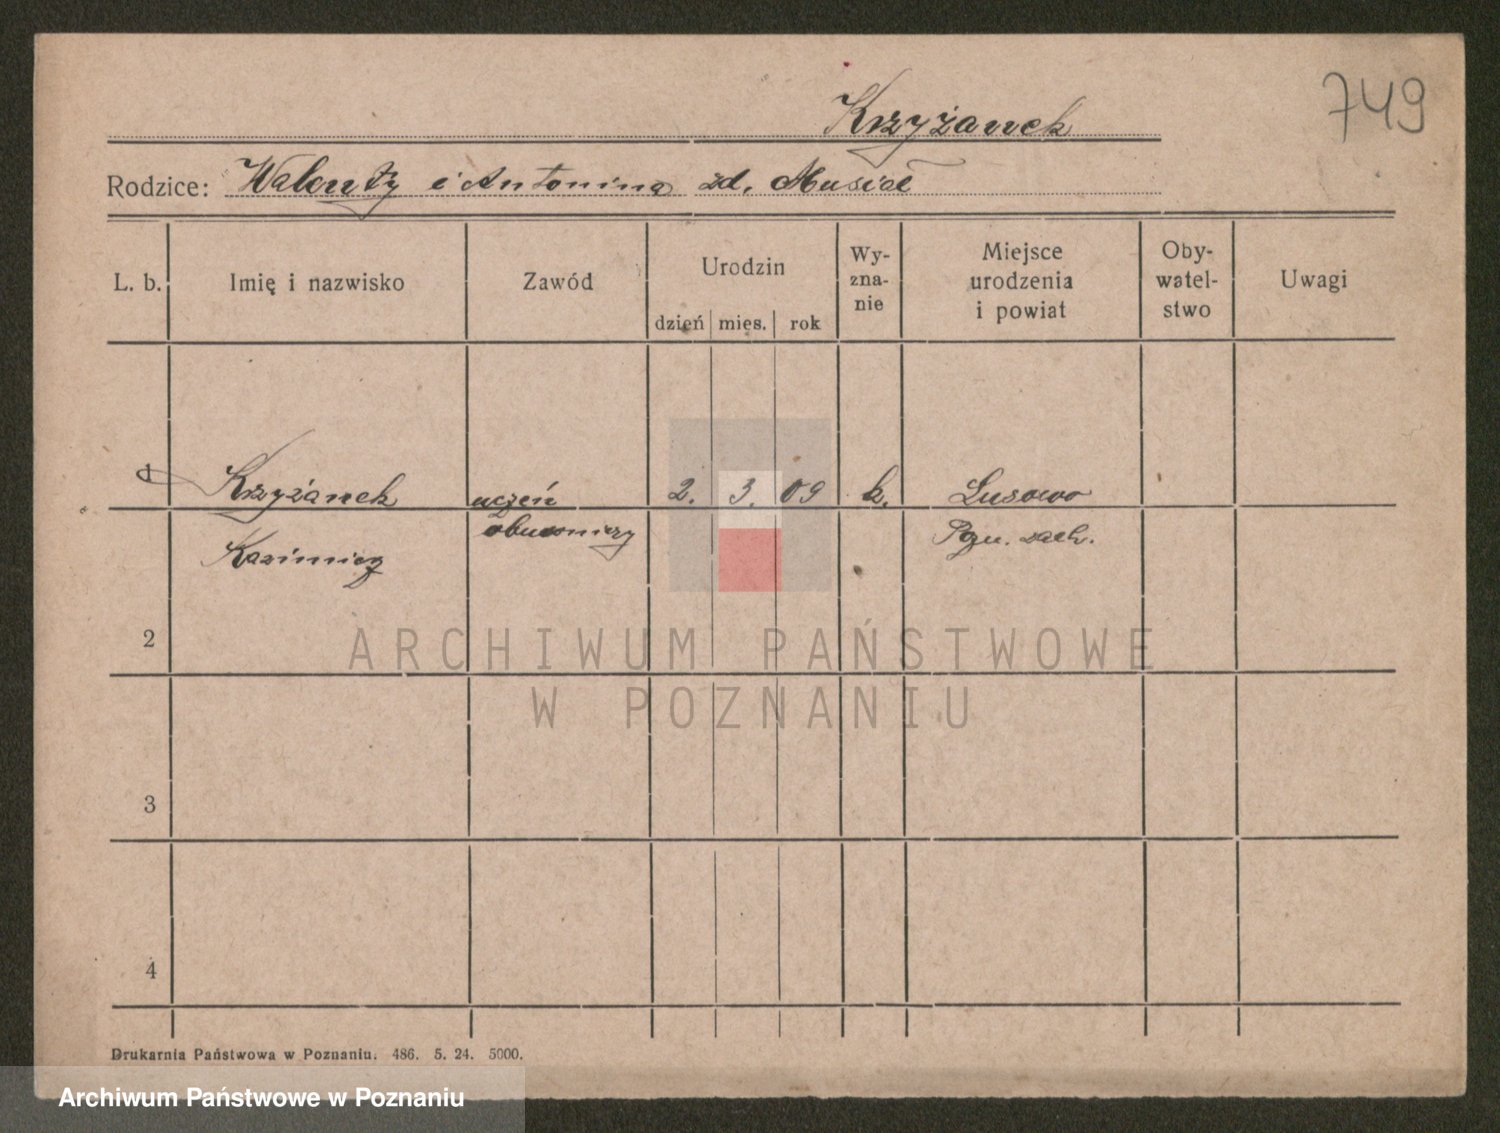 749
Krzyżanek
Rodzice: Walenty i Antonina zd. Musiał
L. b.
Imię i nazwisko
Zawód
Urodzin
dzień mies. rok
Wy-
zna-
nie
Miejsce
urodzenia
i powiat
Oby-
watel-
stwo
Uwagi
1 Krzyżanek uczeń 2. 3. 09 k. Lusowo
Kazimierz obuwniczy Pozn. zach.
2
3
4
ARCHIWUM PAŃSTWOWE
W POZNANIU
Drukarnia Państwowa w Poznaniu. 486. 5. 24. 5000.
Archiwum Państwowe w Poznaniu